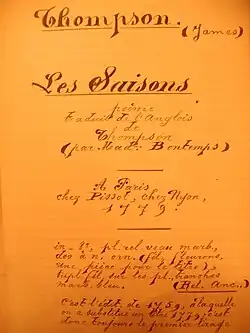 Thompson.
(James)
Les Saisons
poëme
traduit de l'Anglois
de
Thompson
(par Mad: Bontemps)
A Paris
chez Pissot, chez Nyon,
1779.
in 12, pl. rel veau marb,
dos à n. orn. (fil, fleurons,
une pièce pour le titre)
tupl. fil sur les pl, tranches
marb. bleu. (Rel. Anc.,)
C'est l'édit. de 1759, à laquelle
on a substitué un titre 1779, c'est
donc toujours le premier tirage